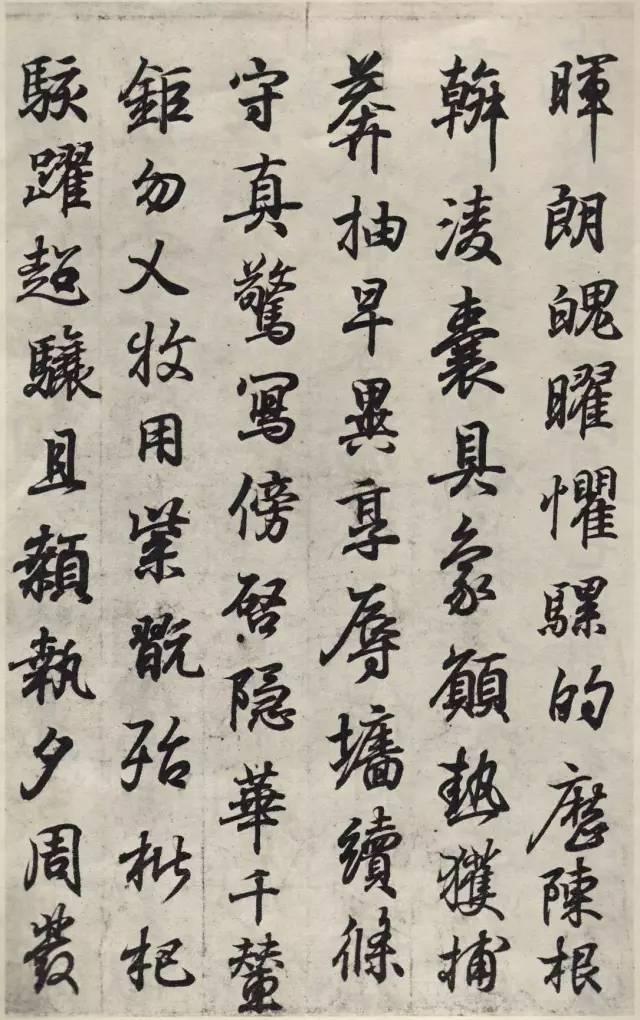 暉朗魄曜懼騾的歷陳根
斡淩囊具象願熱獲捕
莽抽早異享辱墻續條
守真驚寫傍啓隐華千輦
鉅勿乂牧用紫翫殆枇杷
駭躍超驤且顙執夕周發